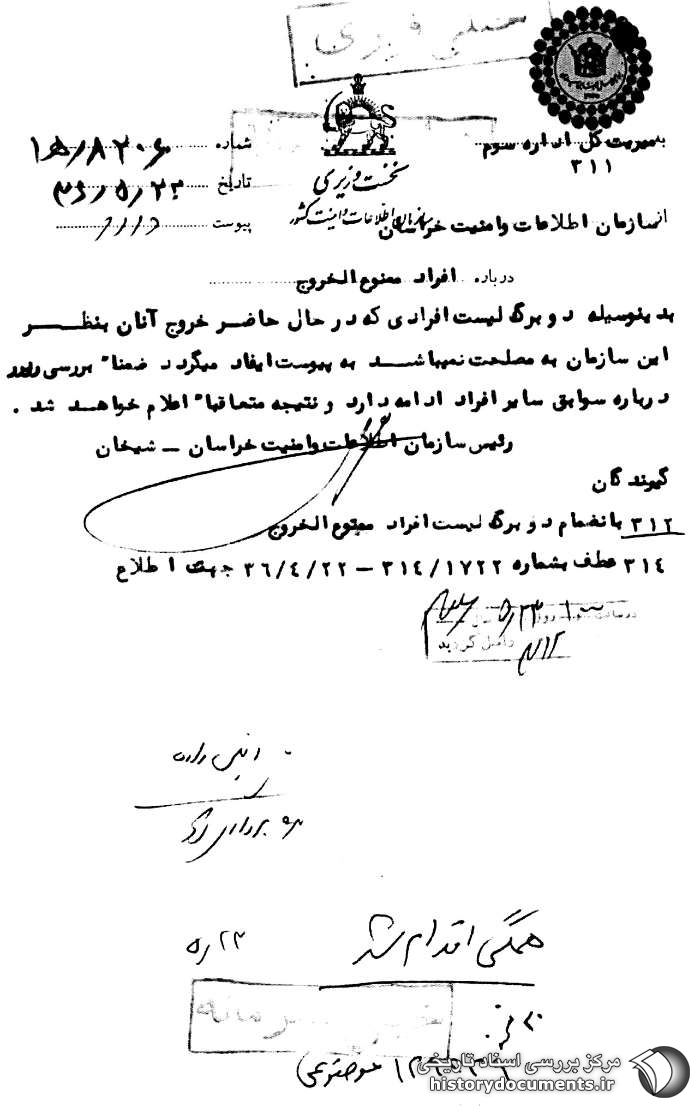 خیلی فوری
بمدیریت کل اداره سوم
۳۱۱
شماره ۱۵/۸۲۰۶
نخست وزیری
تاریخ ۳۶/۵/۲۲
سازمان اطلاعات و امنیت کشور
پیوست دارد
از سازمان اطلاعات وامنیت خراسان
درباره افراد ممنوع الخروج
بدینوسیله دو برگ لیست افرادی که در حال حاضر خروج آنان بنظر
این سازمان به مصلحت نمیباشد به پیوست ایفاد میگردد ضمنا" بررسی
درباره سوابق سایر افراد ادامه دارد و نتیجه متعاقبا" اعلام خواهد شد .
رئیس سازمان اطلاعات وامنیت خراسان ـ شیخان
گیرندگان
۳۱۲ بانضمام دو برگ لیست افراد ممنوع الخروج
۳۱۴ عطف بشماره ۳۱۴/۱۷۲۲ – ۳۶/۴/۲۲ جهت اطلاع
واصل گردید
۳۱۲
همگی اقدام شد ۵/۲۳
محرمانه
موضوعی
مرکز بررسی اسناد تاریخی
historydocuments.ir